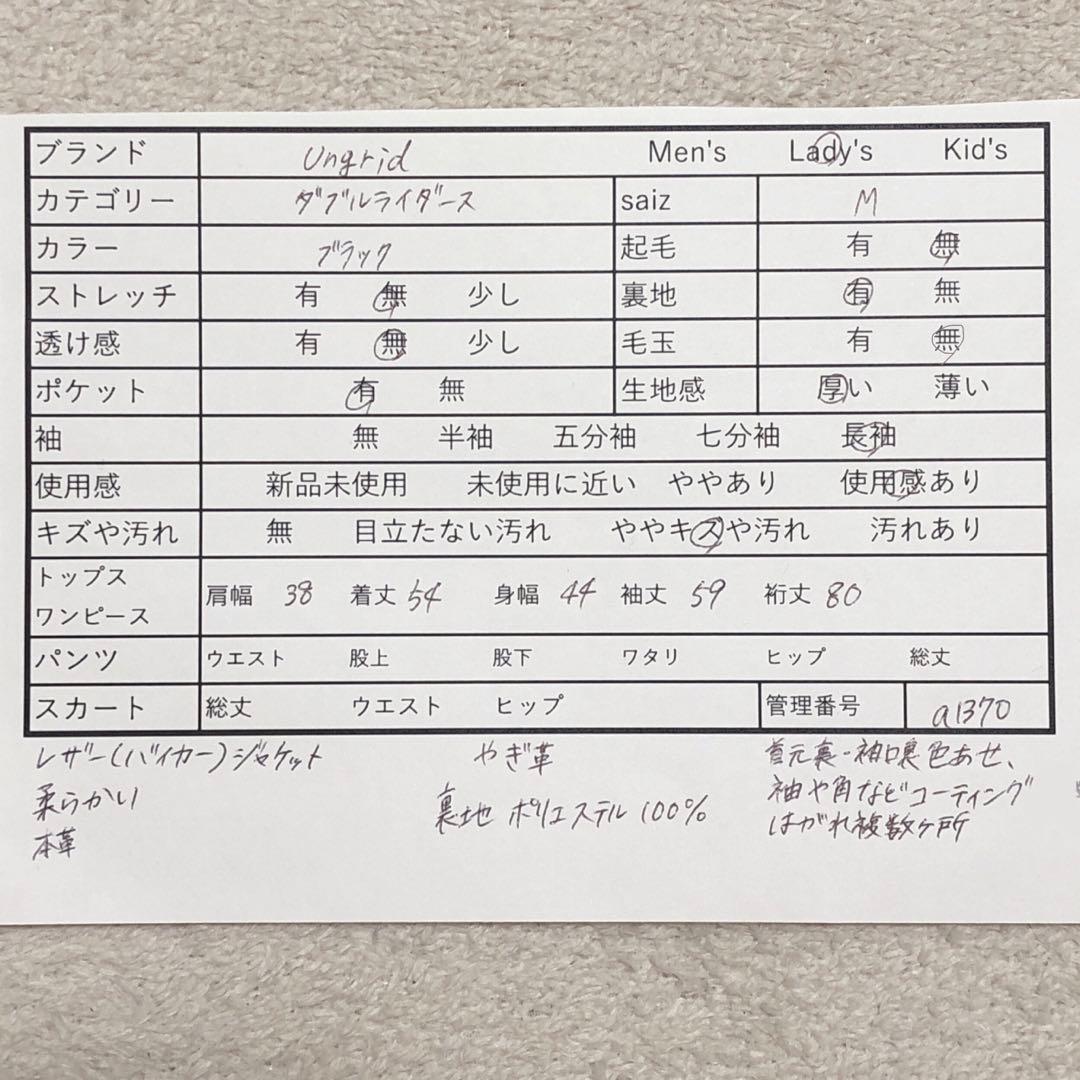 ブランド Ungrid Men's Lady's Kid's
カテゴリー ダブルライダース saiz M
カラー ブラック 起毛 有 無
ストレッチ 有 無 少し 裏地 有 無
透け感 有 無 少し 毛玉 有 無
ポケット 有 無 生地感 厚い 薄い
袖 無 半袖 五分袖 七分袖 長袖
使用感 新品未使用 未使用に近い ややあり 使用感あり
キズや汚れ 無 目立たない汚れ ややキズや汚れ 汚れあり
トップス
ワンピース 肩幅 38 着丈 54 身幅 44 袖丈 59 裄丈 80
パンツ ウエスト 股上 股下 ワタリ ヒップ 総丈
スカート 総丈 ウエスト ヒップ 管理番号 a1370
レザー(バイカー)ジャケット
柔らかい
本革
やぎ革
裏地 ポリエステル 100%
首元裏・袖口裏色あせ、
袖や角などコーティング
はがれ複数ヶ所